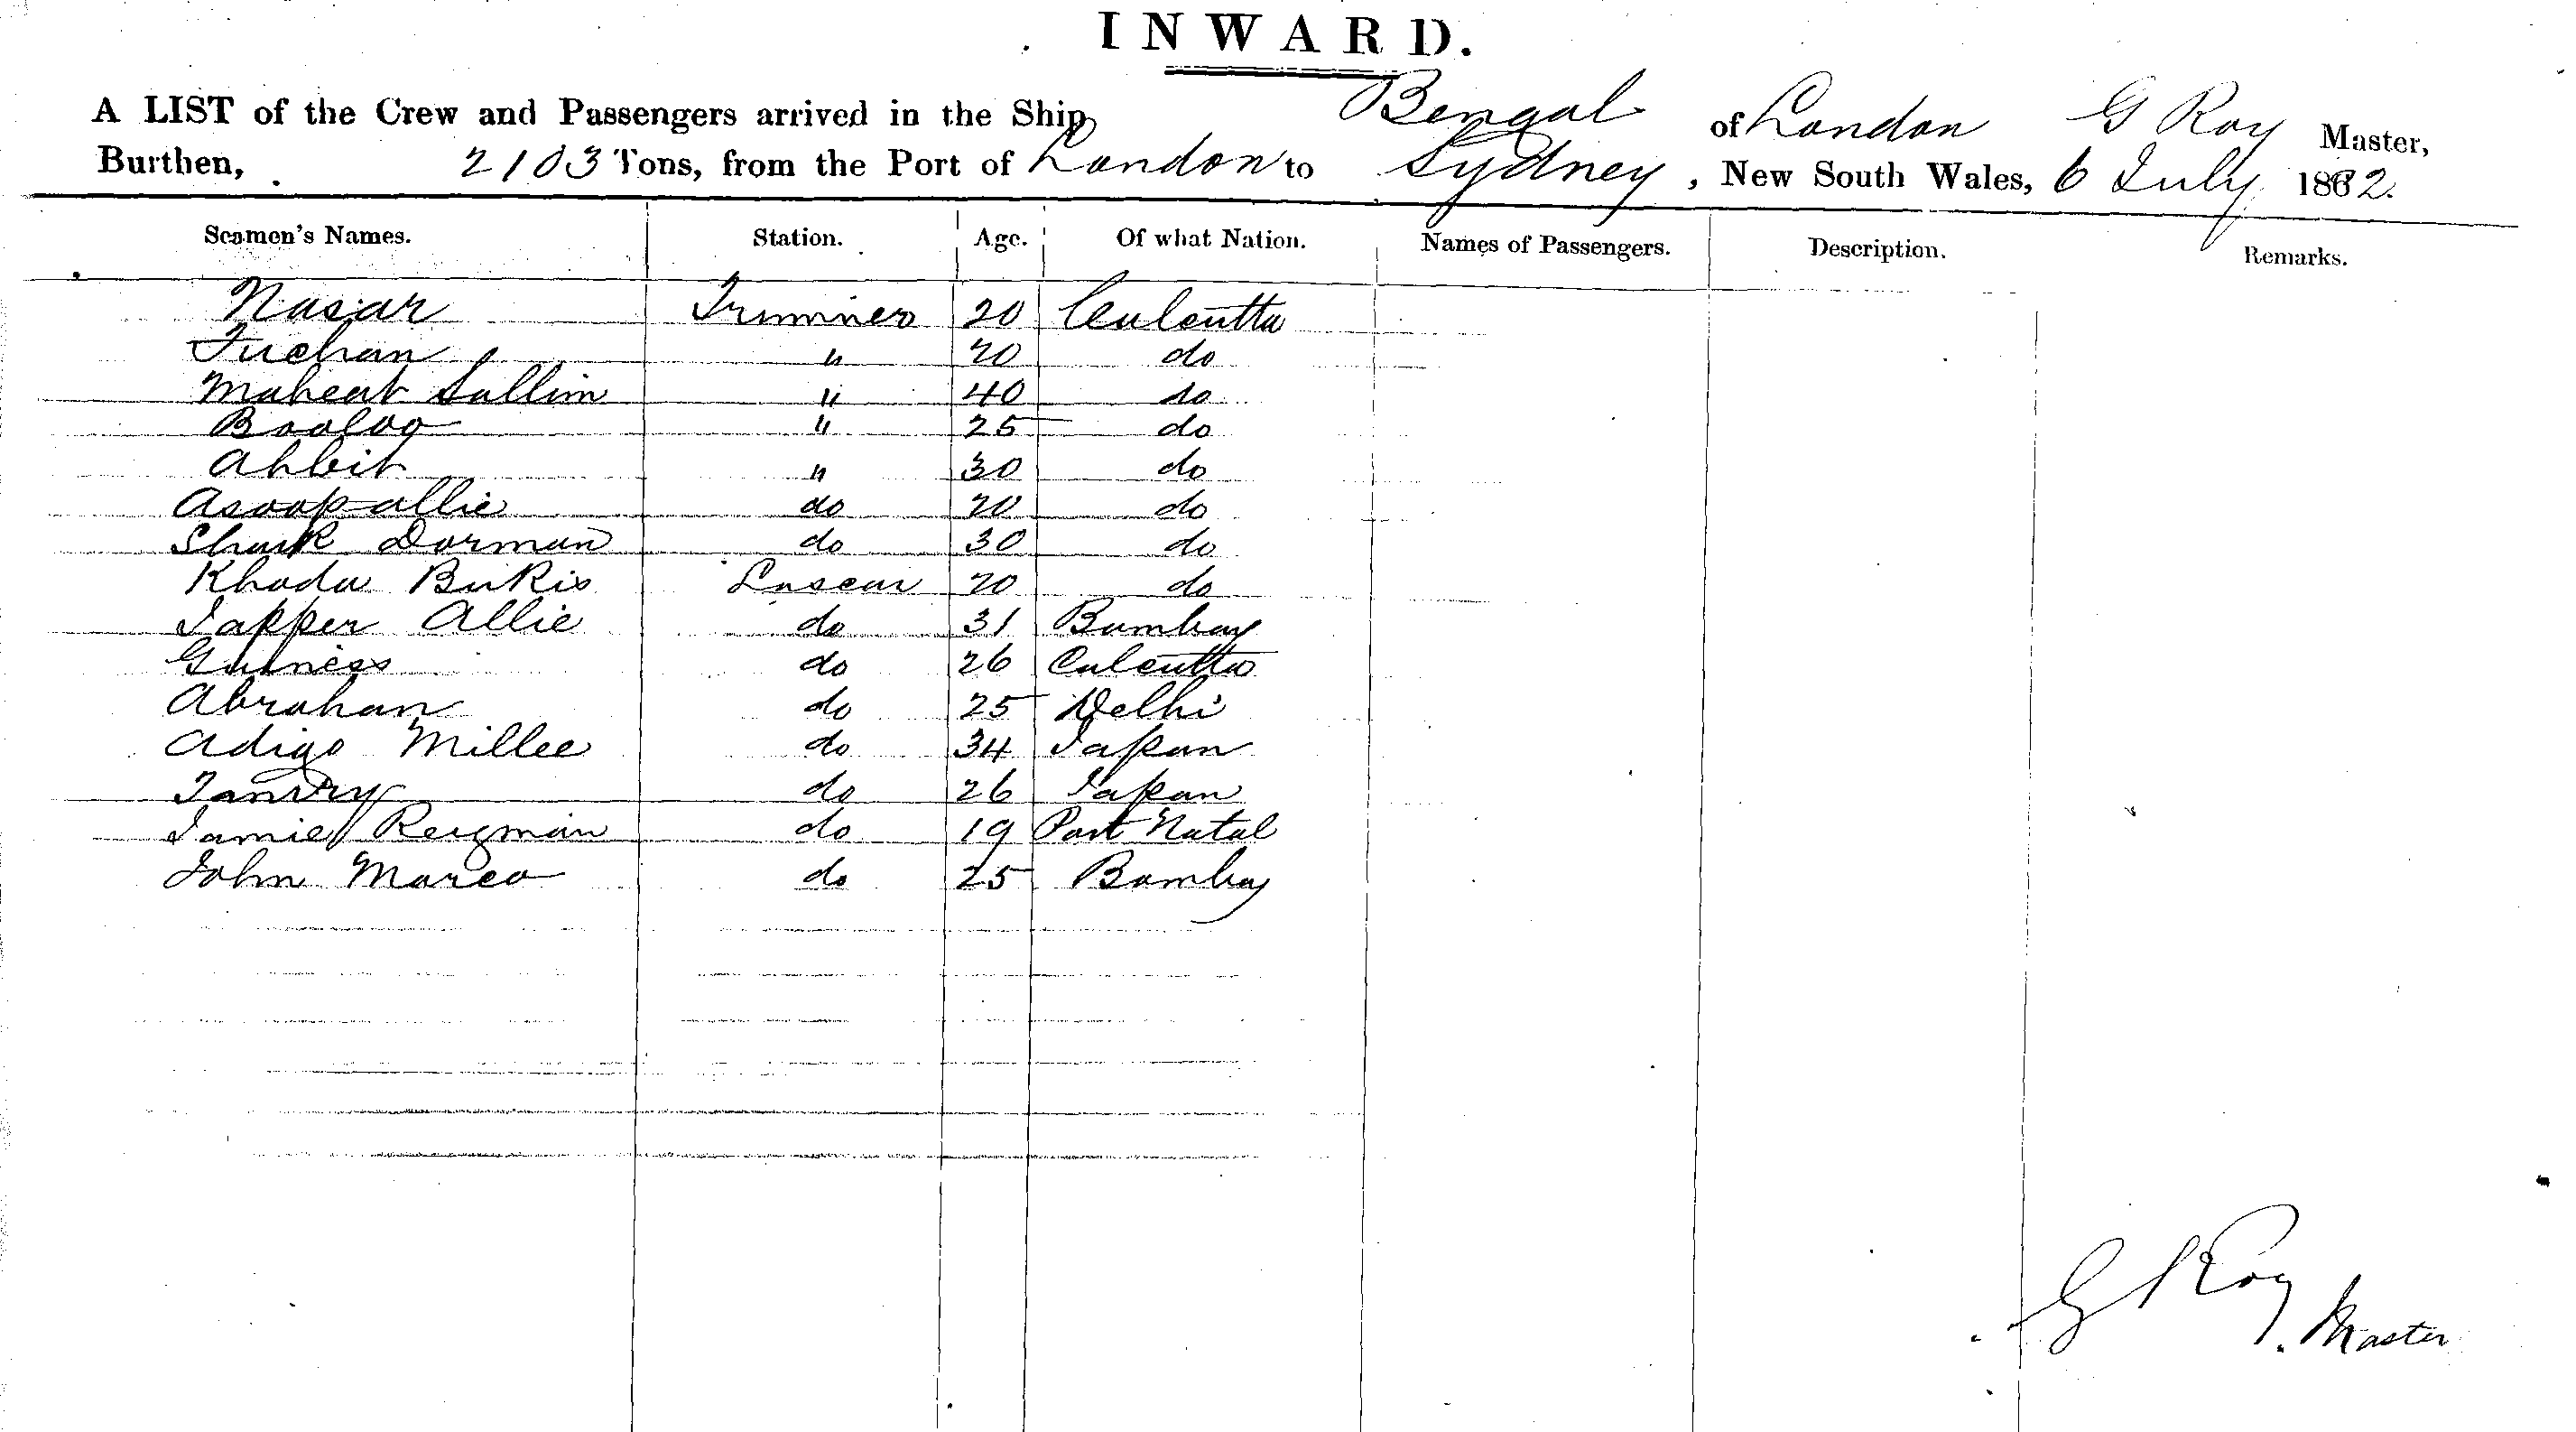 INWARD.
A LIST of the Crew and Passengers arrived in the Ship Bengal of London G Roy Master,
Burthen, 2103 Tons, from the Port of London to Sydney, New South Wales, 6 July 1882.
Seamen's Names. Station. Age. Of what Nation. Names of Passengers. Description. Remarks.
Nasar Trimmer 20 Calcutta
Tuchan " 20 do
Maheat Sallim " 40 do
Booloo " 25 do
Ahbit " 30 do
Asoop allie do 20 do
Shaik Dorman do 30 do
Khoda Bukis Lascar 20 do
Japper Allie do 31 Bombay
do 26 Calcutta
Abrahan do 25 Delhi
Adigo Millee do 34 Japan
do 26 Japan
Jamie do 19 Port Natal
John Marco do 25 Bombay
G Roy
Master